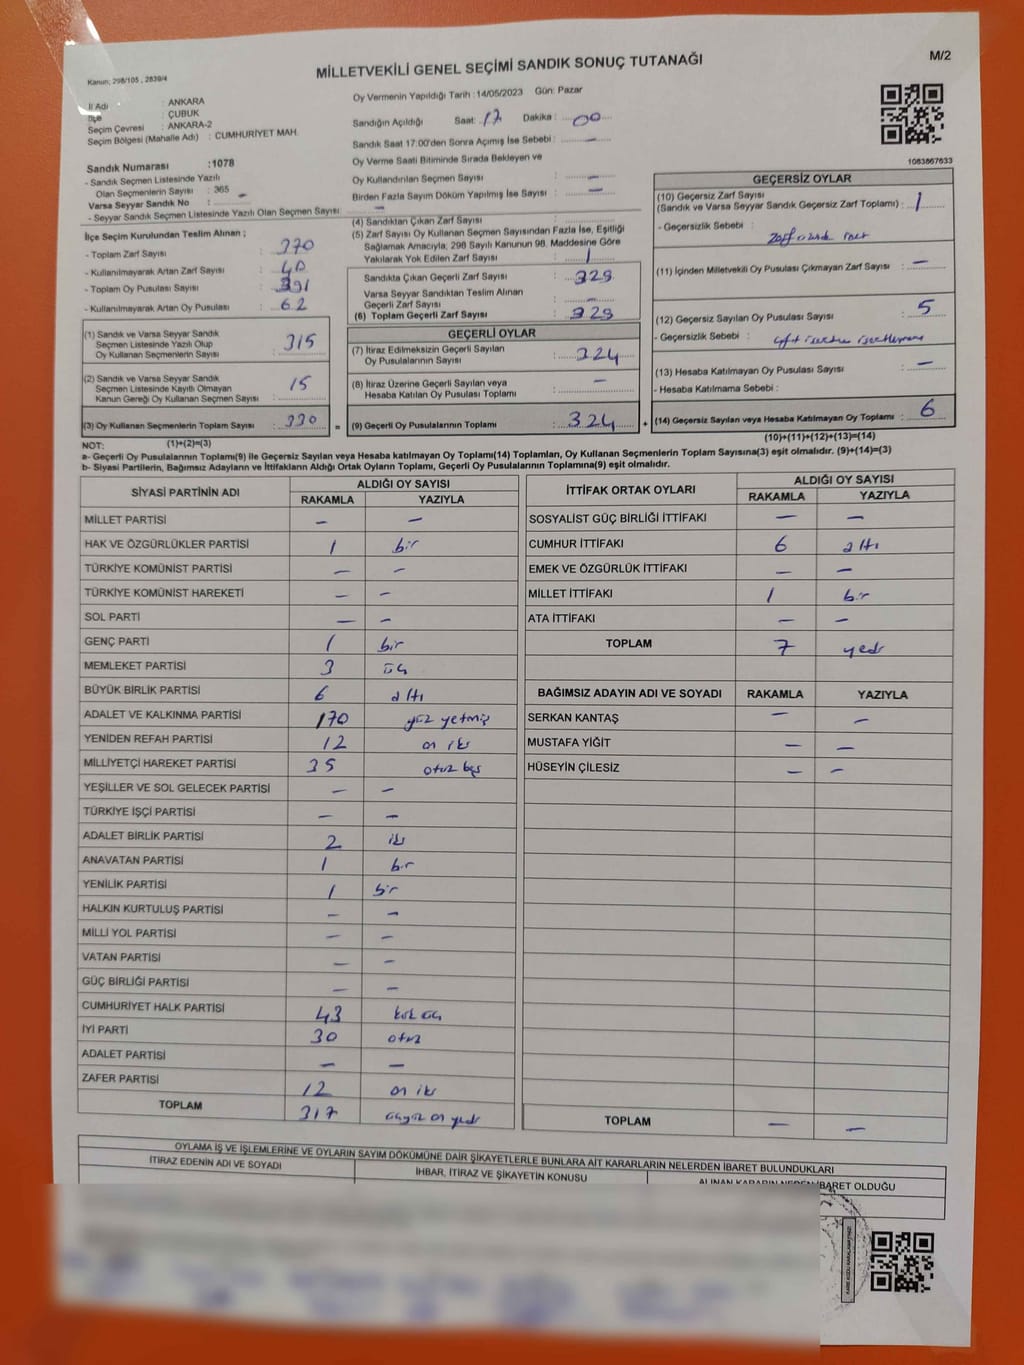 Kanun: 298/105 , 2839/4
MİLLETVEKİLİ GENEL SEÇİMİ SANDIK SONUÇ TUTANAĞI
M/2
İl Adı : ANKARA
İlçe : ÇUBUK
Seçim Çevresi : ANKARA-2
Seçim Bölgesi (Mahalle Adı) : CUMHURİYET MAH.
Sandık Numarası :1078
- Sandık Seçmen Listesinde Yazılı
Olan Seçmenlerin Sayısı : 365
Varsa Seyyar Sandık No : –
- Seyyar Sandık Seçmen Listesinde Yazılı Olan Seçmen Sayısı : –
Oy Vermenin Yapıldığı Tarih : 14/05/2023 Gün: Pazar
Sandığın Açıldığı Saat: 17 Dakika : 00
Sandık Saat 17:00'den Sonra Açımış İse Sebebi : –
Oy Verme Saati Bitiminde Sırada Bekleyen ve
Oy Kullandırılan Seçmen Sayısı : –
Birden Fazla Sayım Döküm Yapılmış İse Sayısı : –
1083867633
İlçe Seçim Kurulundan Teslim Alınan ;
- Toplam Zarf Sayısı : 370
- Kullanılmayarak Artan Zarf Sayısı : 40
- Toplam Oy Pusulası Sayısı : 391
- Kullanılmayarak Artan Oy Pusulası : 62
(1) Sandık ve Varsa Seyyar Sandık
Seçmen Listesinde Yazılı Olup
Oy Kullanan Seçmenlerin Sayısı : 315
(2) Sandık ve Varsa Seyyar Sandık
Seçmen Listesinde Kayıtlı Olmayan
Kanun Gereği Oy Kullanan Seçmen Sayısı : 15
(3) Oy Kullanan Seçmenlerin Toplam Sayısı : 330 =
(1)+(2)=(3)
(4) Sandıktan Çıkan Zarf Sayısı :
(5) Zarf Sayısı Oy Kullanan Seçmen Sayısından Fazla İse, Eşitliği
Sağlamak Amacıyla; 298 Sayılı Kanunun 98. Maddesine Göre
Yakılarak Yok Edilen Zarf Sayısı : 1
Sandıkta Çıkan Geçerli Zarf Sayısı : 329
Varsa Seyyar Sandıktan Teslim Alınan
Geçerli Zarf Sayısı : –
(6) Toplam Geçerli Zarf Sayısı : 329
GEÇERLİ OYLAR
(7) İtiraz Edilmeksizin Geçerli Sayılan
Oy Pusulalarının Sayısı : 324
(8) İtiraz Üzerine Geçerli Sayılan veya
Hesaba Katılan Oy Pusulası Toplamı : –
(9) Geçerli Oy Pusulalarının Toplamı : 324 +
GEÇERSİZ OYLAR
(10) Geçersiz Zarf Sayısı
(Sandık ve Varsa Seyyar Sandık Geçersiz Zarf Toplamı) : 1
- Geçersizlik Sebebi :
(11) İçinden Milletvekili Oy Pusulası Çıkmayan Zarf Sayısı : –
(12) Geçersiz Sayılan Oy Pusulası Sayısı : 5
- Geçersizlik Sebebi :
(13) Hesaba Katılmayan Oy Pusulası Sayısı : –
- Hesaba Katılmama Sebebi :
(14) Geçersiz Sayılan veya Hesaba Katılmayan Oy Toplamı : 6
(10)+(11)+(12)+(13)=(14)
NOT:
a- Geçerli Oy Pusulalarının Toplamı(9) ile Geçersiz Sayılan veya Hesaba katılmayan Oy Toplamı(14) Toplamları, Oy Kullanan Seçmenlerin Toplam Sayısına(3) eşit olmalıdır. (9)+(14)=(3)
b- Siyasi Partilerin, Bağımsız Adayların ve İttifakların Aldığı Ortak Oyların Toplamı, Geçerli Oy Pusulalarının Toplamına(9) eşit olmalıdır.
SİYASİ PARTİNİN ADI ALDIĞI OY SAYISI
RAKAMLA YAZIYLA
MİLLET PARTİSİ – –
HAK VE ÖZGÜRLÜKLER PARTİSİ 1 bir
TÜRKİYE KOMÜNİST PARTİSİ – –
TÜRKİYE KOMÜNİST HAREKETİ – –
SOL PARTİ – –
GENÇ PARTİ 1 bir
MEMLEKET PARTİSİ 3 üç
BÜYÜK BİRLİK PARTİSİ 6 altı
ADALET VE KALKINMA PARTİSİ 170 yüz yetmiş
YENİDEN REFAH PARTİSİ 12 on iki
MİLLİYETÇİ HAREKET PARTİSİ 35 otuz beş
YEŞİLLER VE SOL GELECEK PARTİSİ – –
TÜRKİYE İŞÇİ PARTİSİ – –
ADALET BİRLİK PARTİSİ 2 iki
ANAVATAN PARTİSİ 1 bir
YENİLİK PARTİSİ 1 bir
HALKIN KURTULUŞ PARTİSİ – –
MİLLİ YOL PARTİSİ – –
VATAN PARTİSİ – –
GÜÇ BİRLİĞİ PARTİSİ – –
CUMHURİYET HALK PARTİSİ 43 kırk üç
İYİ PARTİ 30 otuz
ADALET PARTİSİ – –
ZAFER PARTİSİ 12 on iki
TOPLAM 317 üçyüz on yedi
İTTİFAK ORTAK OYLARI ALDIĞI OY SAYISI
RAKAMLA YAZIYLA
SOSYALİST GÜÇ BİRLİĞİ İTTİFAKI – –
CUMHUR İTTİFAKI 6 altı
EMEK VE ÖZGÜRLÜK İTTİFAKI – –
MİLLET İTTİFAKI 1 bir
ATA İTTİFAKI – –
TOPLAM 7 yedi
BAĞIMSIZ ADAYIN ADI VE SOYADI RAKAMLA YAZIYLA
SERKAN KANTAŞ – –
MUSTAFA YİĞİT – –
HÜSEYİN ÇİLESİZ – –
TOPLAM – –
OYLAMA İŞ VE İŞLEMLERİNE VE OYLARIN SAYIM DÖKÜMÜNE DAİR ŞİKAYETLERLE BUNLARA AİT KARARLARIN NELERDEN İBARET BULUNDUKLARI
İTİRAZ EDENİN ADI VE SOYADI İHBAR, İTİRAZ VE ŞİKAYETİN KONUSU ALINAN KARARIN NEDEN İBARET OLDUĞU